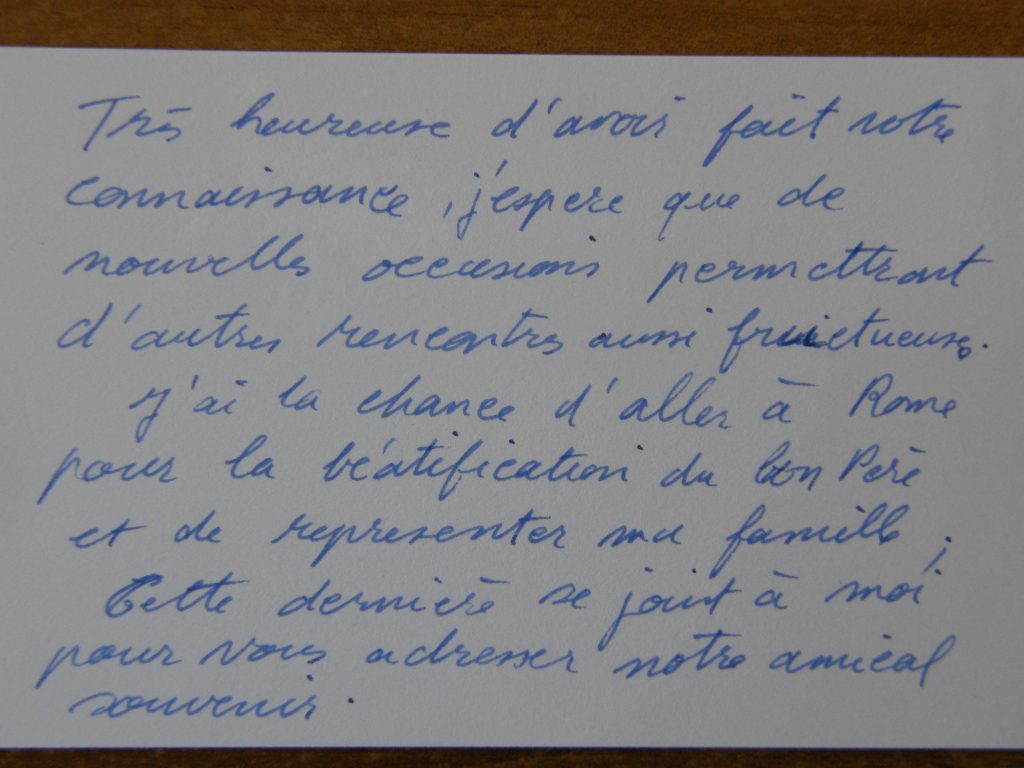 Très heureuse d'avoir fait votre
connaissance, j'espere que de
nouvelles occasions permettront
d'autres rencontres aussi fructueuses.
J'ai la chance d'aller à Rome
pour la béatification du bon Père
et de representer ma famille;
Cette dernière se joint à moi
pour vous adresser notre amical
souvenir.